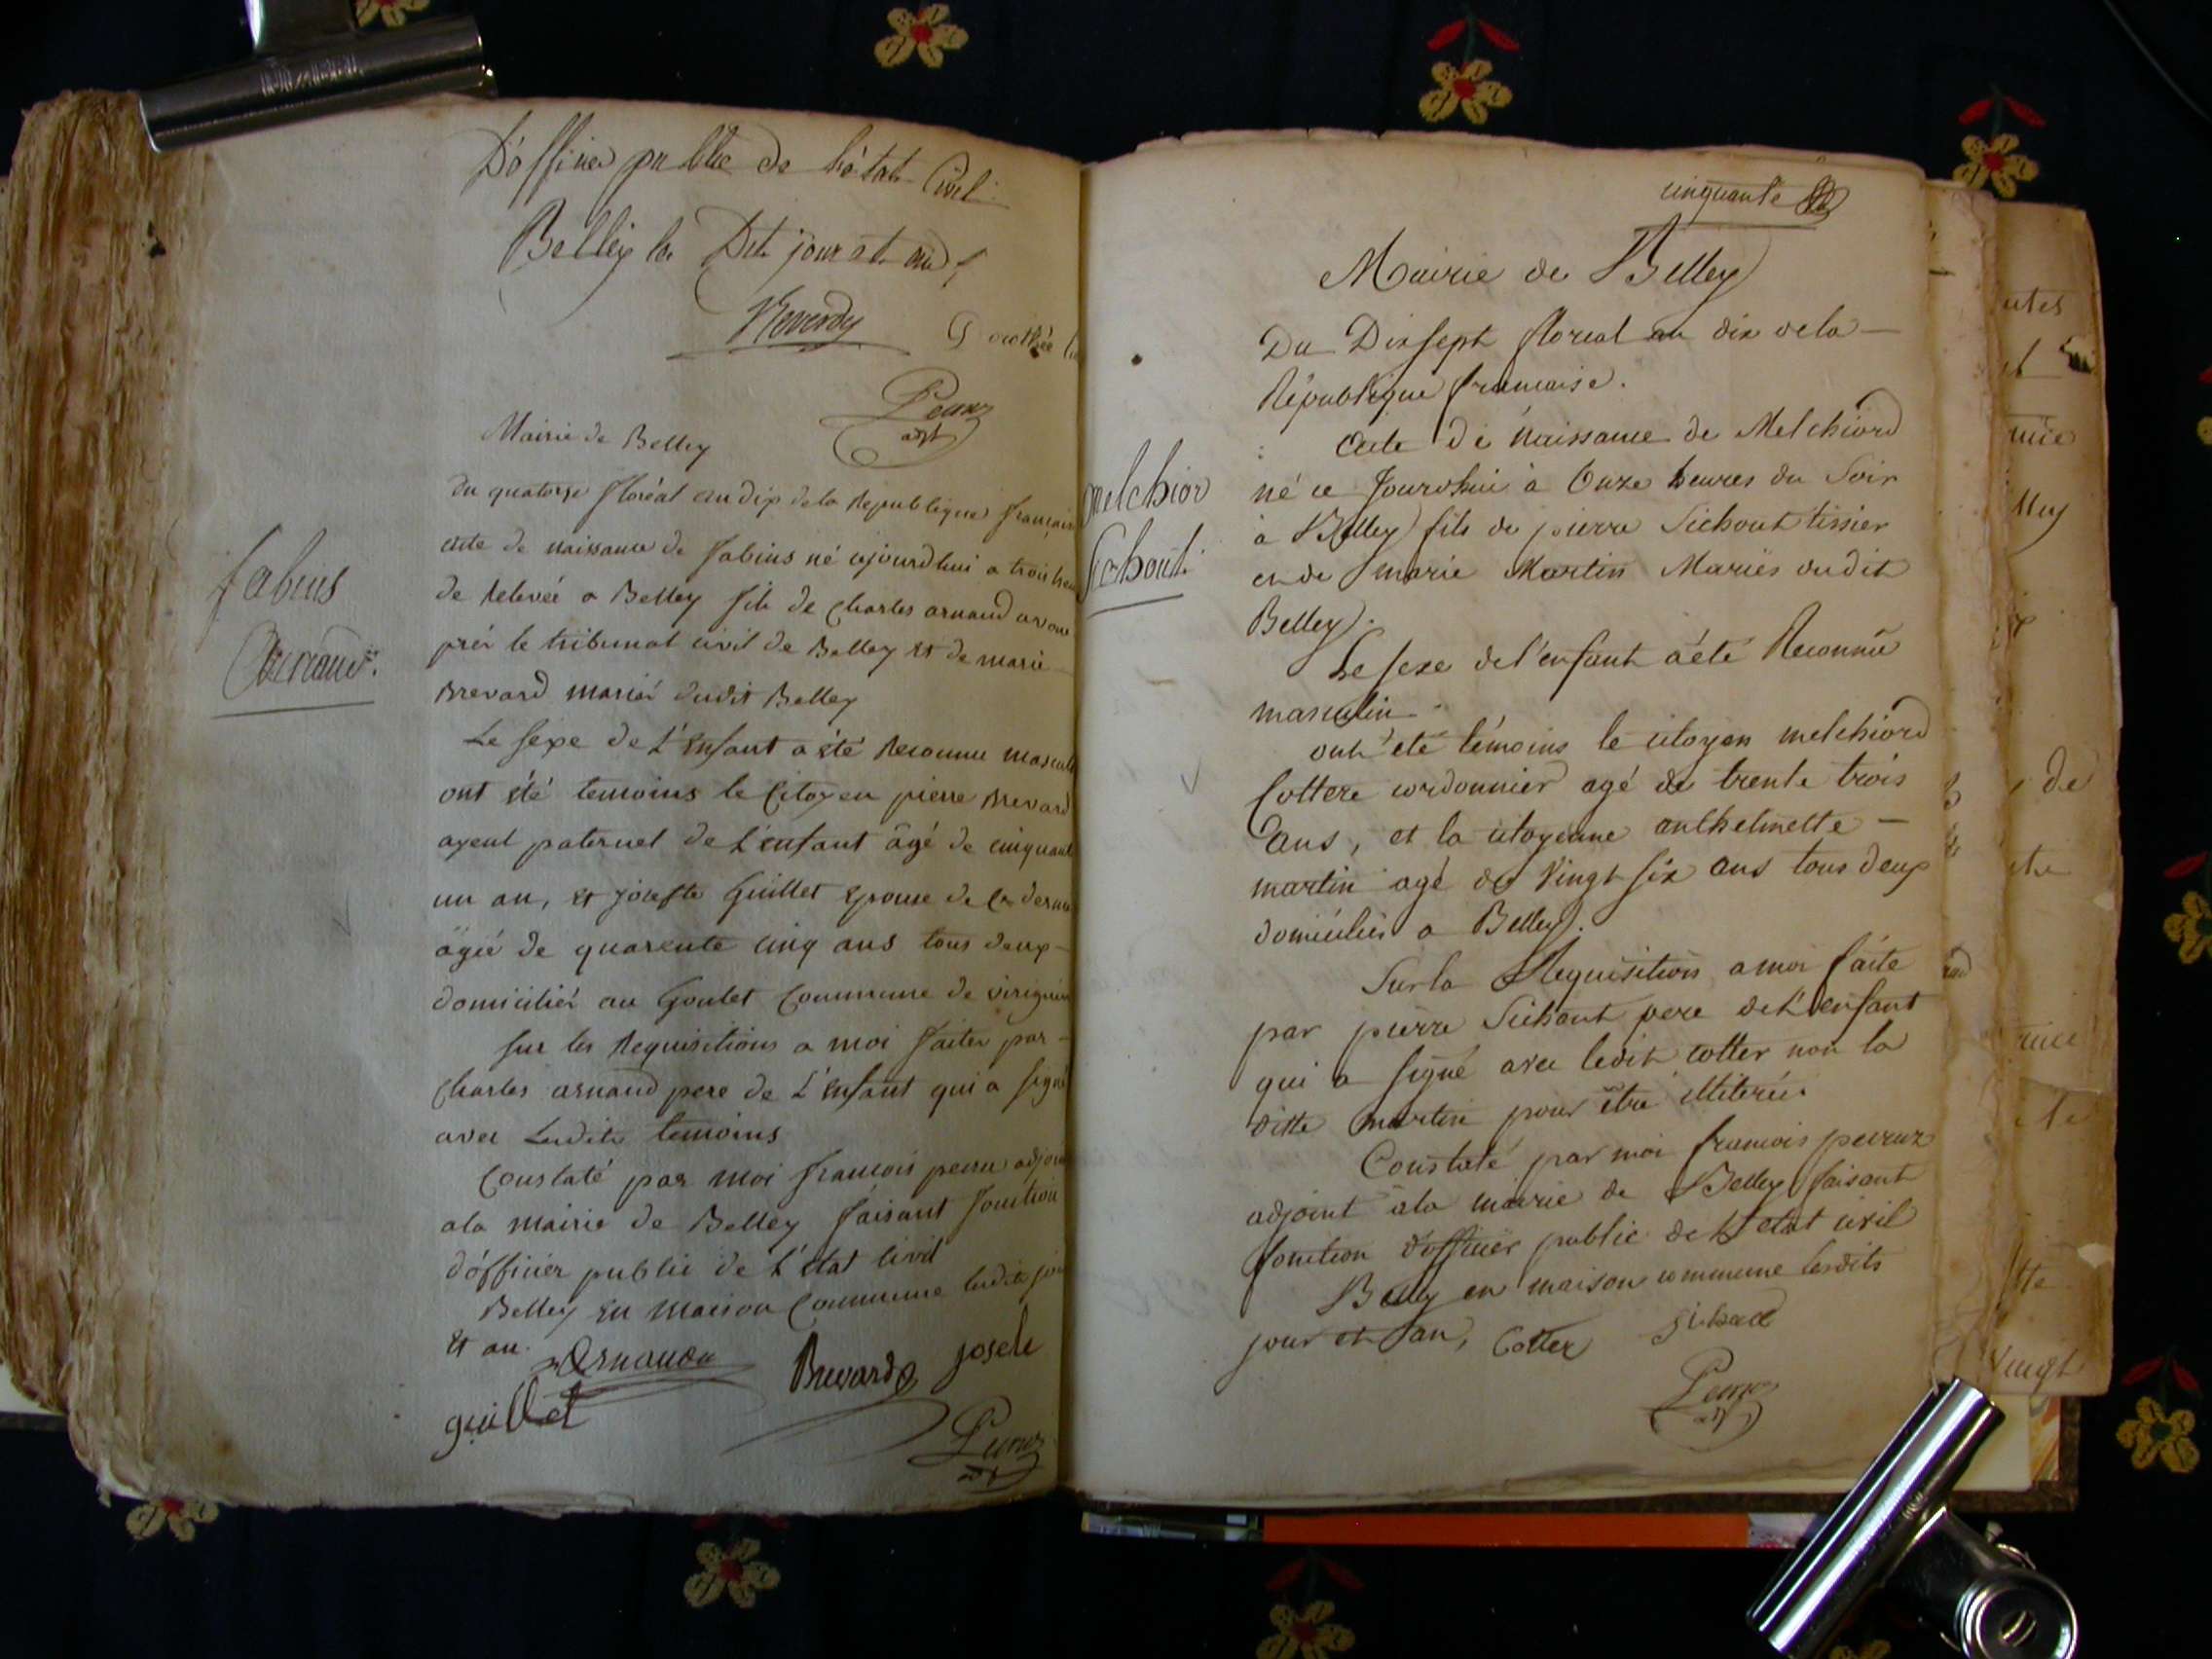 D'officier public de l'état Civil
Belley le Dit jour et an
Reverdy
Peruz
adjt
Mairie de Belley
du quatorze floréal an dix de la Republique française
acte de naissance de fabius né ajourdhui a trois heu
de Relevée a Belley fils de Charles arnaud avoué
près le tribunal civil de Belley et de marie
Brevard mariés dudit Belley
Le sexe de L'enfant a été Reconnu mascul
ont été temoins le Citoyen pierre Brevard
ayeul paternel de L'enfant âgé de cinquante
un an, et josefte Guillet epouse de ce dernier
âgée de quarente cinq ans tous deux
domiciliés au Goulet Commune de virignin
sur les Requisitions a moi faites par
Charles arnaud pere de L'enfant qui a signé
avec Lesdits temoins
Constaté par moi francois peiru adjoi
ala mairie de Belley faisant fonction
d'officier public de L'état Civil
Belley en maison Commune lesdits jou
et an.
Arnaud
Brevard josete
guillet
Peruz
adjt
fabius
Arnaud.
cinquante
Mairie de Belley
Du Dix sept floreal an dix de la
République francaise.
Acte de Naissance de Melchiord
né ce Jourdhui à Onze heures du Soir
à Belley fils de pierre Sichout tissier
et de marie Martin Mariés dudit
Belley.
Le sexe de l'enfant a été Reconnu
masculin
ont été témoins le citoyen melchiord
Cottere cordonnier agé de trente trois
ans, et la citoyenne anthelmette
martin agé de Vingt six ans tous deux
domiciliés a Belley.
Sur la Requisition a moi faite
par pierre Sichout pere de l'enfant
qui a signé avec ledit cotter non la
ditte martin pour être illiterée.
Constaté par moi francois peruz
adjoint à la mairie de Belley faisant
fonction d'officier public de l'etat civil
Belley en maison commune lesdits
jour et an, Cotter sichad
Peruz
adjt
melchior
vingt